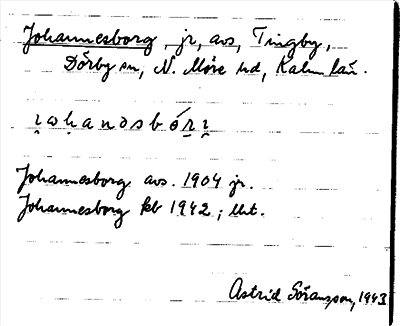 Johannesborg, jr, avs, Tingby,
Dörby sn, N. Möre hd, Kalm län.
Johannesborg avs. 1904 jr.
Johannesborg kb 1942; Utt.
Astrid Göransson, 1943